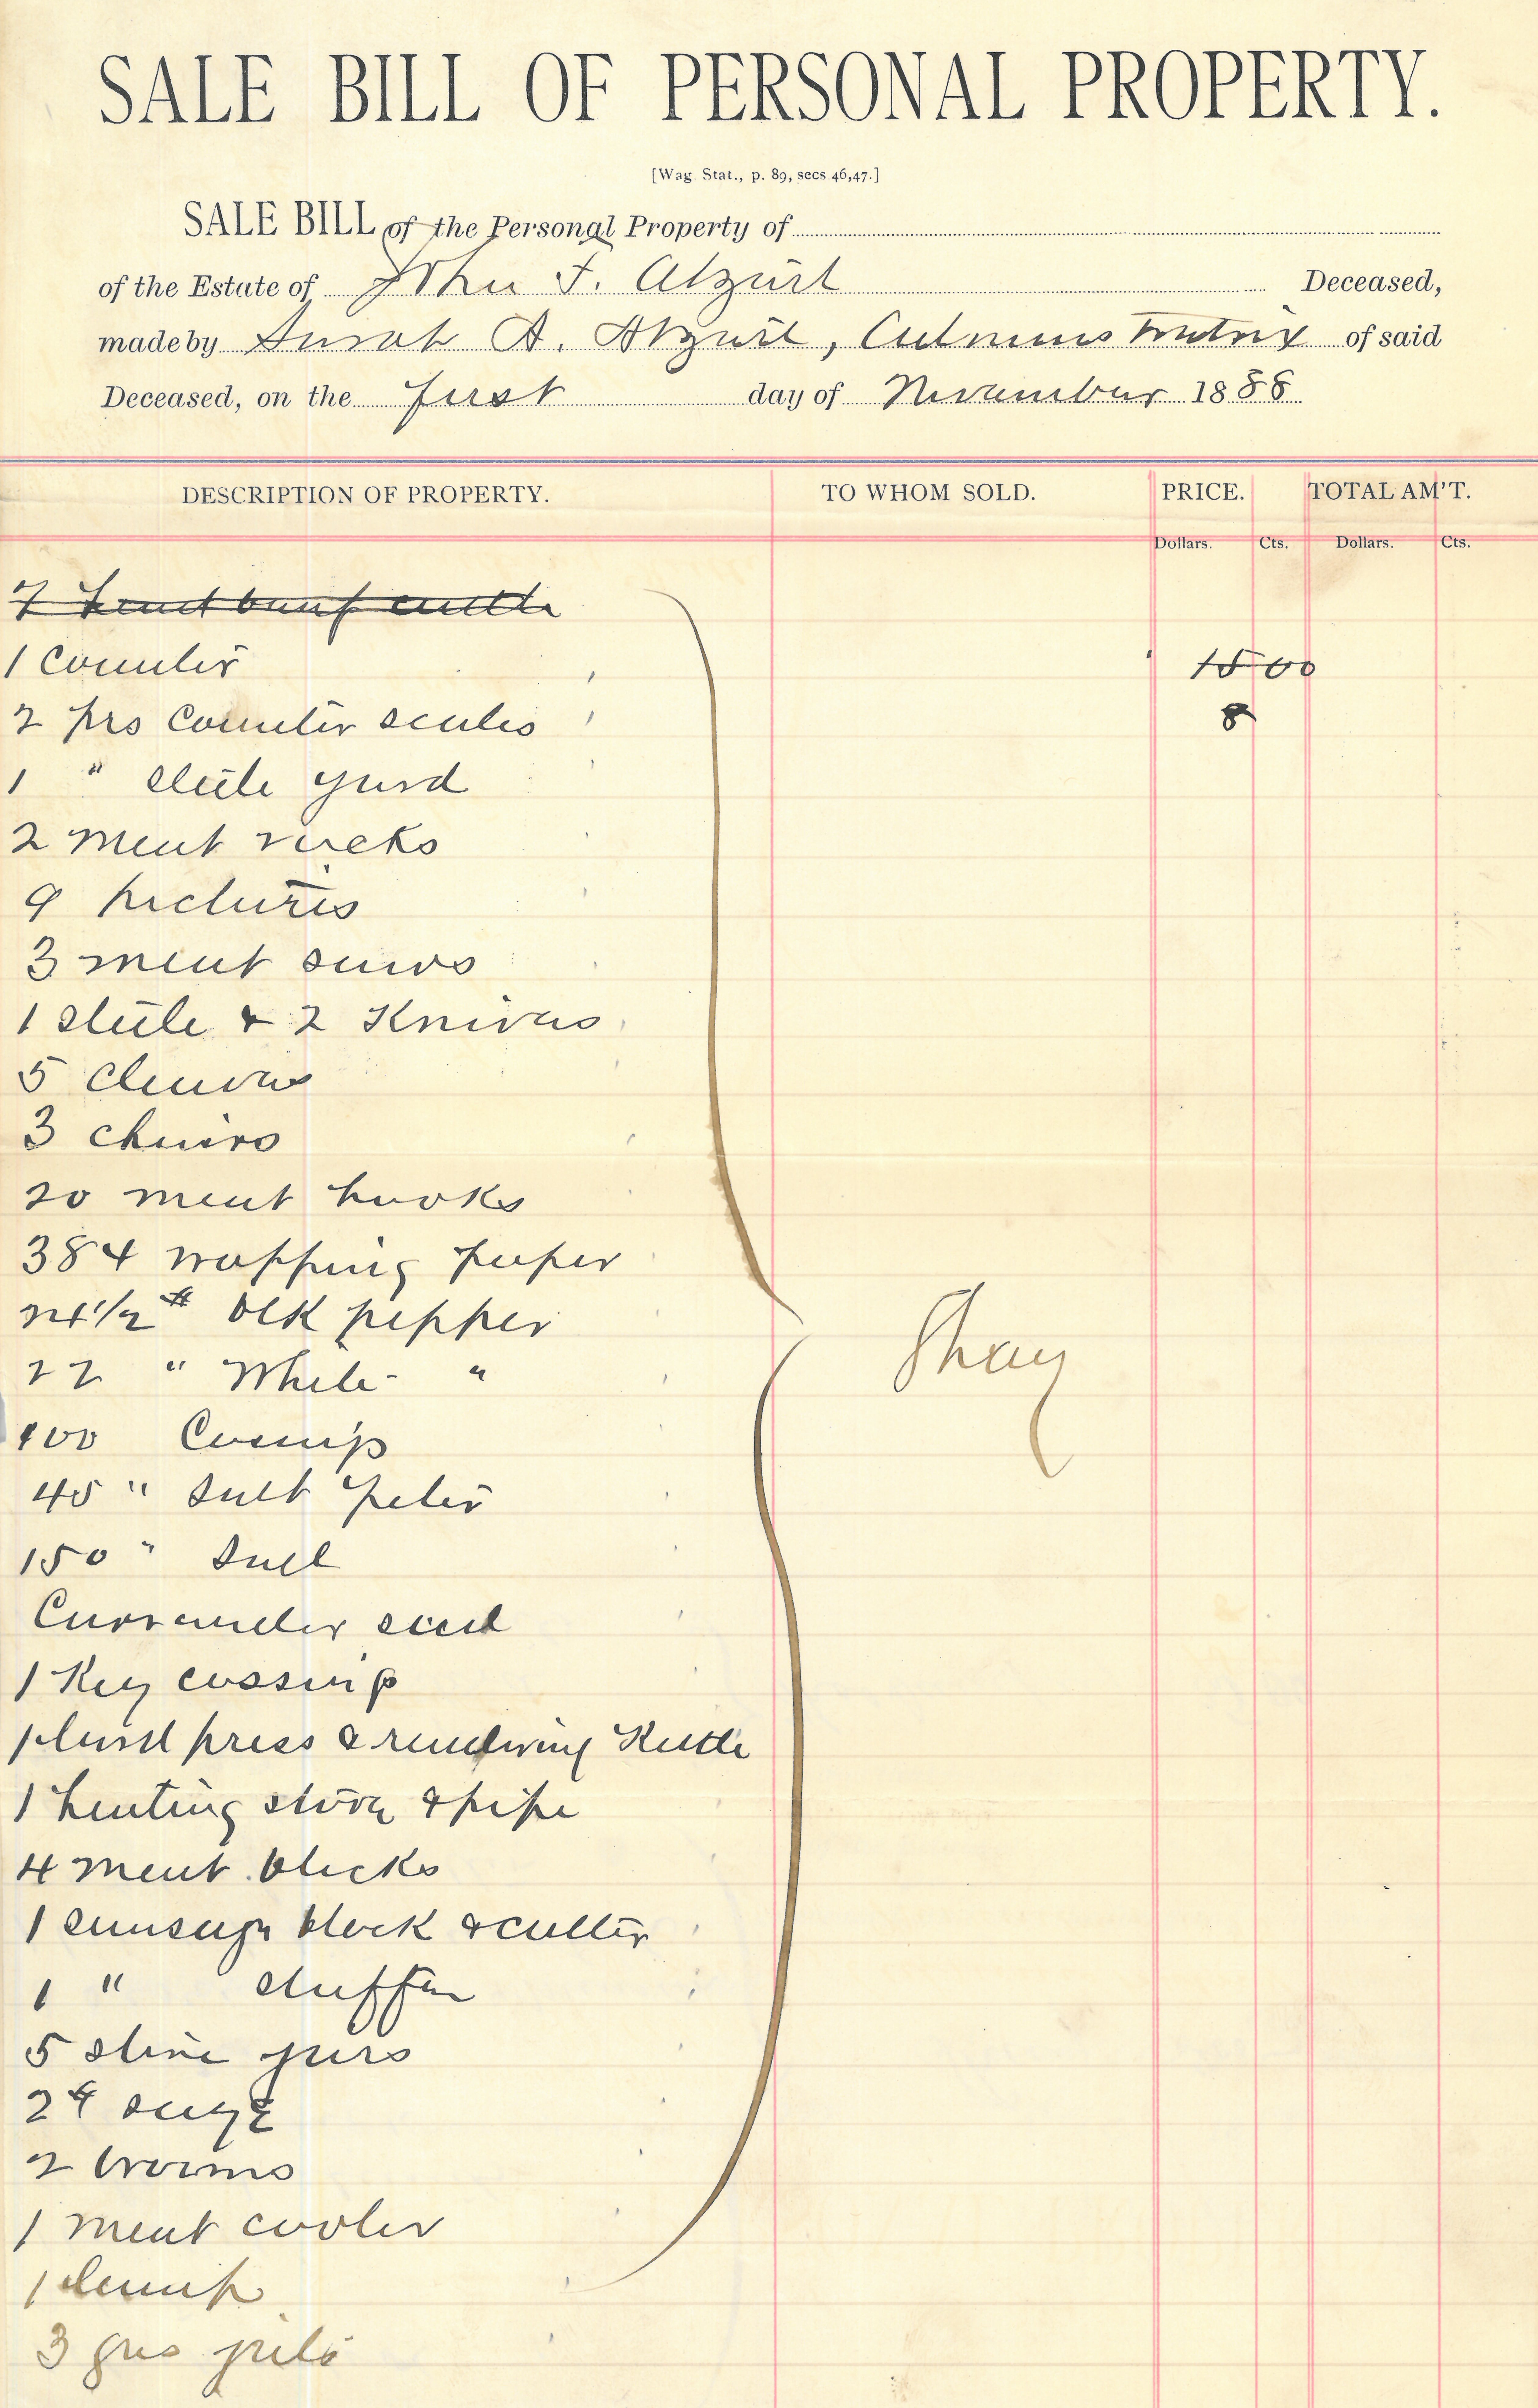 SALE BILL OF PERSONAL PROPERTY.
[Wag. Stat., p. 89, secs. 46, 47.]
SALE BILL of the Personal Property of
of the Estate of John F. Atzert Deceased,
made by Sarah A. Atzert, Administratrix of said
Deceased, on the first day of November 1888
DESCRIPTION OF PROPERTY. TO WHOM SOLD. PRICE. TOTAL AM'T.
Dollars. Cts. Dollars. Cts.
7 head beef cattle
1 Counter 15 00
2 prs Counter scales 8
1 " steele yard
2 meat racks
9 pictures
3 meat saws
1 steele & 2 Knives
5 cleavers
3 chairs
20 meat hooks
384 wrapping paper
24 1/2 # blk pepper
22 " White "
Shay
100
45 " salt peter
150 " salt
Currander seed
1 Keg cassing
1 lard press & rendering Kettle
1 heating stove & pipe
4 meat blocks
1 sausage block & cutter
1 " stuffer
5 stone jars
2 # sage
2 brooms
1 meat cooler
1 lamp
3 gas